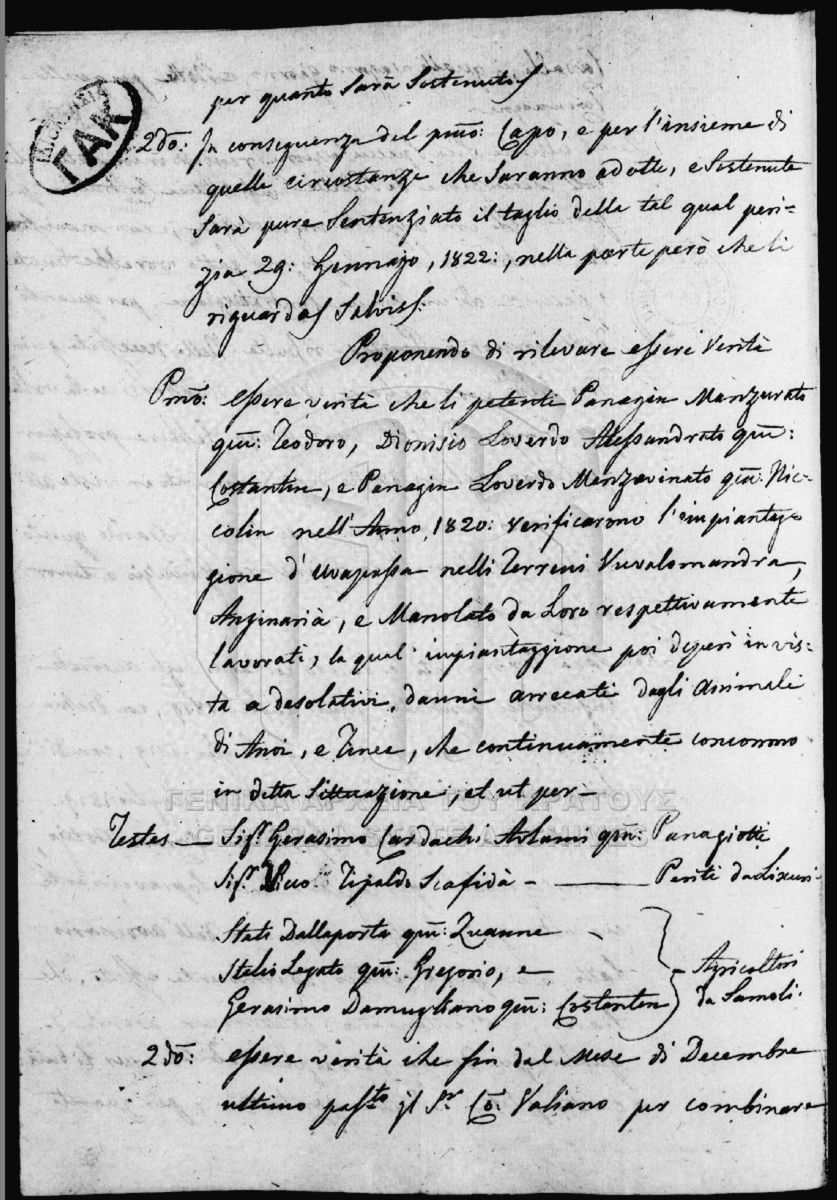 per quanto Sarà Sostenuto
ΓΑΚ
2do: In conseguenza del pmo: Capo, e per l'insieme di
quelle circostanze che Saranno adotte, e Sostenute
Sarà pure Sentenziato il taglio della tal qual peri=
zia 29: Gennajo, 1822:, nella parte però che li
riguarda Salvis:
Proponendo di rilevare essere Verità
Pmo: essere verità che li petenti Panagin Manzurato
qm: Teodoro, Dionisio Loverdo Alessandrato qm:
Costantin, e Panagin Loverdo Manzavinato qm: Nic=
colin nell'Anno, 1820: verificarono l'impiantag=
gione d'Uvapassa nelli Terreni Vuvalomandra,
Anginarià, e Manolato da Loro respettivamente
lavorati, la qual impiantaggione poi deperì in vis=
ta a desolativi danni arrecati dagli Animali
di Anoi, e Tinee, che continuamente concorrono
in detta Situazione, et ut per—
ΓΕΝΙΚΑ ΑΡΧΕΙΑ ΤΟΥ ΚΡΑΤΟΥΣ
Testes — Sigr Gerasimo Cardachi Avlami qm: Panagiotti
Sigr Nicco: Tipaldo Scafidà - — Periti da Lixuri
Stati Dallaporta qm: Zuanne -
Stelio Legato qm: Gregorio, e
Gerasimo Damugliano qm: Costantin
- Agricoltori
da Samoli:
2do: essere verità che fin dal Mese di Decembre
ultimo passto il Sr Co: Valiano per combinare